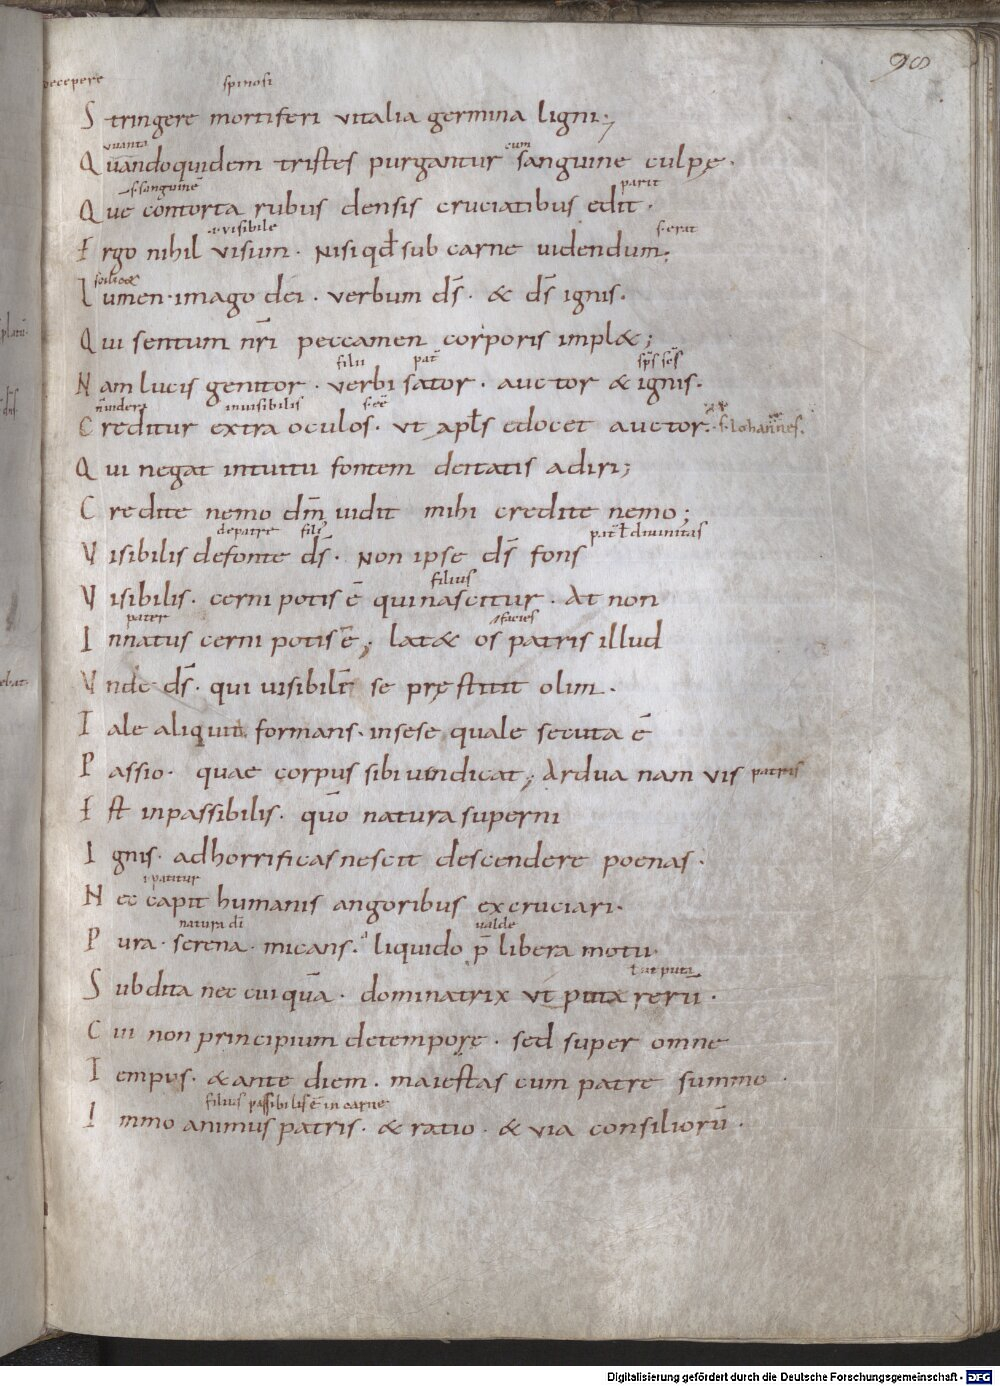 98
decepere spinosi
Stringere mortiferi vitalia germina ligni;
cum
Quandoquidem tristes purgantur sanguine culpę.
s. sanguinē parit
Que contorta rubus densis cruciatibus edit.
i. visibile s. erat
Ergo nihil visum. Nisi qđ sub carne uidendum;
scilicet
Lumen. imago dei. verbum ds̄. & ds̄ ignis.
Qui sentum nr̄i peccamen corporis impl&;
filii pat̄ sp̄s sc̄s
Nam lucis genitor. verbi sator. auctor & ignis.
invisibilis s. eē
Creditur extra oculos. ut apl̄s edocet auctor. s. Iohannes.
Qui negat intuitu fontem deitatis adiri;
Credite nemo dm̄ uidit mihi credite nemo;
de patre divinitas
Visibilis de fonte ds̄. Non ipse ds̄ fons
filius
Visibilis. cerni potis ē qui nascitur. At non
pater facies
Innatus cerni potis ē; lat& os patris illud
Vnde ds̄. qui uisibilē se pręstitit olim.
Tale aliquid formans. in sese quale secuta ē
Passio. quae corpus sibi uindicat; Ardua nam vis patris
Est inpassibilis. quō natura superni
Ignis. ad horrificas nescit descendere poenas.
i. patitur
Nec capit humanis angoribus excruciari.
natura dī valde
Pura. serena. micans. liquido p̄ libera motu.
Subdita nec cuiquā. dominatrix ut puta rerū.
Cui non principium de tempore. sed super omne
Tempus. & ante diem. maiestas cum patre summo.
filius passibilis ē in carne
Immo animus patris. & ratio. & via consiliorū.
Digitalisierung gefördert durch die Deutsche Forschungsgemeinschaft - DFG